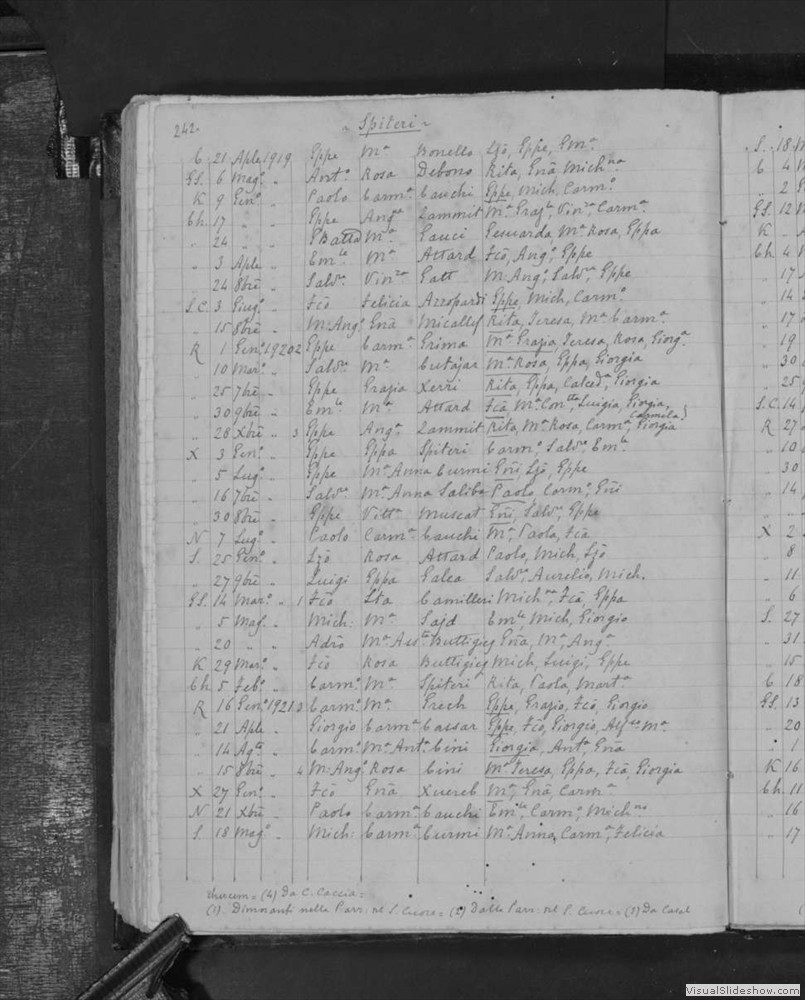 242. Spiteri
C 21 Aple 1919 Gppe Ma Bonello Ljō, Gppe, Ema
GS. 6 Mago " Anto Rosa Debono Rita, Gnā, Michna
K 9 Geno " Paolo Carma Cauchi Gppe, Mich, Carmo
Ch. 17 " " Gppe Anga Zammit Ma Grazla, Vinza, Carma
" 24 " " GBatta Ma Gauci Ma Rosa, Gppa
" 3 Aple " Emle Ma Attard Fcō, Ango, Gppe
" 24 8bre " Salvre Vinza Gatt M. Anga, Salvre, Gppe
S.C. 3 Giugo " Fcō Felicia Azzopardi Gppe, Mich, Carmo
" 15 8bre " M. Ango Gnā Micallef Rita, Teresa, Ma Carma
R 1 Geno 1920 2 Gppe Carma Grima Ma Grazia, Teresa, Rosa, Giorga
" 10 Maro " Salvre Ma Cutajar Ma Rosa, Gppa, Giorgia
" 25 7bre " Gppe Grazia Xerri Rita, Gppa, Calceda, Giorgia
" 30 9bre " Emle Ma Attard Fcā, Ma Contta, Luigia, Giorgia, Carmela)
" 28 Xbre " 3 Gppe Anga Zammit Rita, Ma Rosa, Carma, Giorgia
X 3 Geno " Gppe Gppa Spiteri Carmo, Salvre, Emle
" 5 Lugo " Gppe Ma Anna Curmi Gnī, Ljō, Gppe
" 16 7bre " Salvre Ma Anna Saliba Paolo, Carmo, Gnī
" 30 8bre " Gppe Vitta Muscat Gnī, Salvre, Gppa
N 7 Lugo " Paolo Carma Cauchi Ma, Paola, Fcā
S. 25 Geno " Ljō Rosa Attard Paolo, Mich, Ljō
" 27 9bre " Luigi Gppa Galea Salvre, Aurelio, Mich.
GS. 14 Maro " 1 Fcō Camilleri Michna, Fcā, Gppa
" 5 Mago " Mich: Ma Sajd Emle, Mich, Giorgio
" 20 " " Adrō Ma Assta Buttigieg Gnā, Ma Anga
K 29 Maro " Fcō Rosa Buttigieg Mich, Luigi, Gppe
Ch. 5 Febo " Carmo Ma Spiteri Rita, Paola, Marta
R 16 Geno 1921 3 Carmo Ma Grech Gppe, Grazio, Fcō, Giorgio
" 21 Aple " Giorgio Carma Cassar Gppe, Fcō, Giorgio, Alfso Ma
" 14 Agto " Carmo Ma Anta Cini Giorgia, Anta, Gnā
" 15 8bre " 4 M. Ango Rosa Cini Ma Teresa, Gppa, Fcā, Giorgia
X 27 Geno " Fcō Gnā Xuereb Ma, Gnā, Carma
N 21 Xbre " Paolo Carma Cauchi Emle, Carmo, Michno
S. 18 Mago " Mich: Carma Curmi Ma Anna, Carma, Felicia
= (4) Da C. Caccia =
(1). Dimoranti nella Parr. del S. Cuore = (2) Dalla Parr. del S. Cuore = (3) Da Casal
S. 18
C. 4
" 2
GS. 12
K
Ch 4
" 17
" 14
" 17
" 19
" 30
" 25
S.C. 14
R 27
" 10
" 30
" 14
X 2
" 8
" 11
" 6
S. 27
" 31
" 15
C 18
GS. 13
" 20
" 1
K 16
Ch. 11
" 16
" 17
VisualSlideshow.com